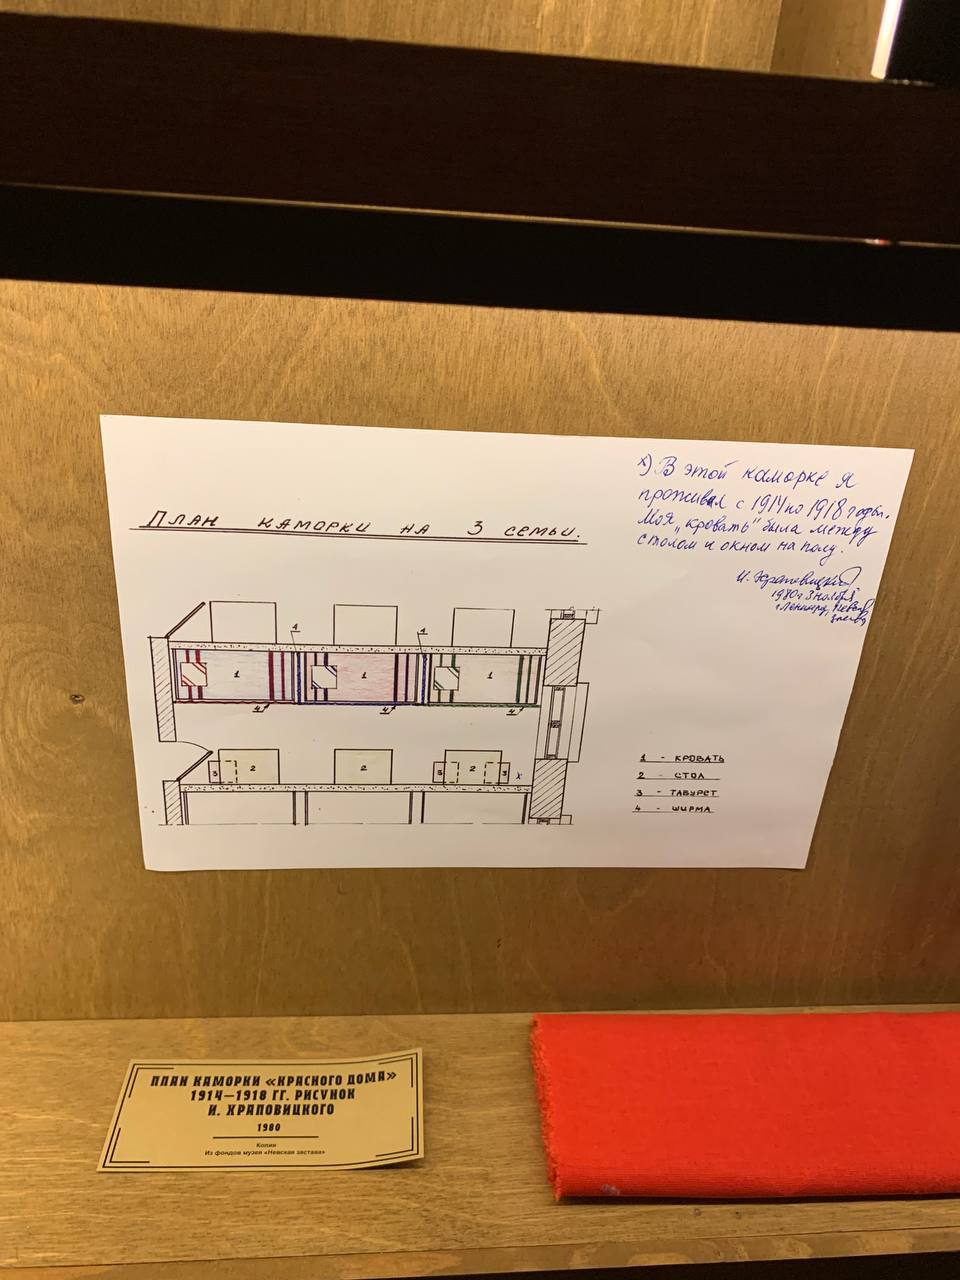 х) В этой каморке я
проживал с 1914 по 1918 годы.
Моя „кровать" была между
столом и окном на полу.
И. Храповицкий
1980 г 3 ноября
г Ленинград, Невская
застава
План каморки на 3 семьи.
4
4
1
1
1
4
4
4
3
2
2
3
2
3
х
1 - кровать
2 - стол
3 - табурет
4 - ширма
ПЛАН КАМОРКИ «КРАСНОГО ДОМА»
1914–1918 ГГ. РИСУНОК
И. ХРАПОВИЦКОГО
1980
Копия
Из фондов музея «Невская застава»